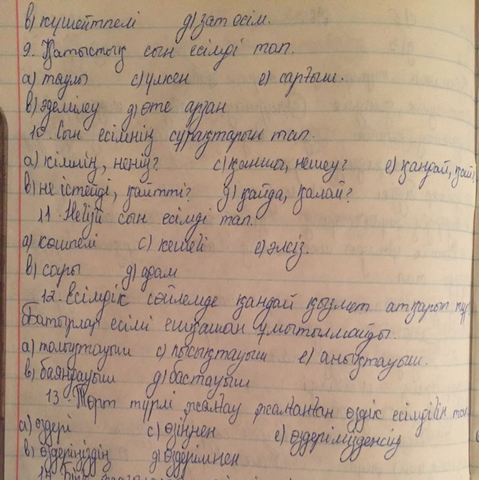 в) күшейтпелі д) зат есім.
9. Қатыстық сын есімді тап.
а) таулы с) үлкен е) сарғыш.
в) әдемілеу д) өте арзан
10. Сын есімнің сұрақтарын тап.
а) кімнің, ненің? с) қанша, нешеу? е) қандай, қай
в) не істейді, қайтті? д) қайда, қалай?
11. Негізгі сын есімді тап.
а) көшпелі с) кешегі е) әлсіз.
в) сары д) адам
12. Есімдік сөйлемде қандай қызмет атқарып тұр.
Батырлар есімі ешқашан ұмытылмайды.
а) толықтауыш с) пысықтауыш е) анықтауыш.
в) баяндауыш д) бастауыш
13. Төрт түрлі жалғау жалғанған өздік есімдігін тап
а) өздері с) өзіннен е) өздеріміздensің
в) өздеріңіздің д) өздерімнен